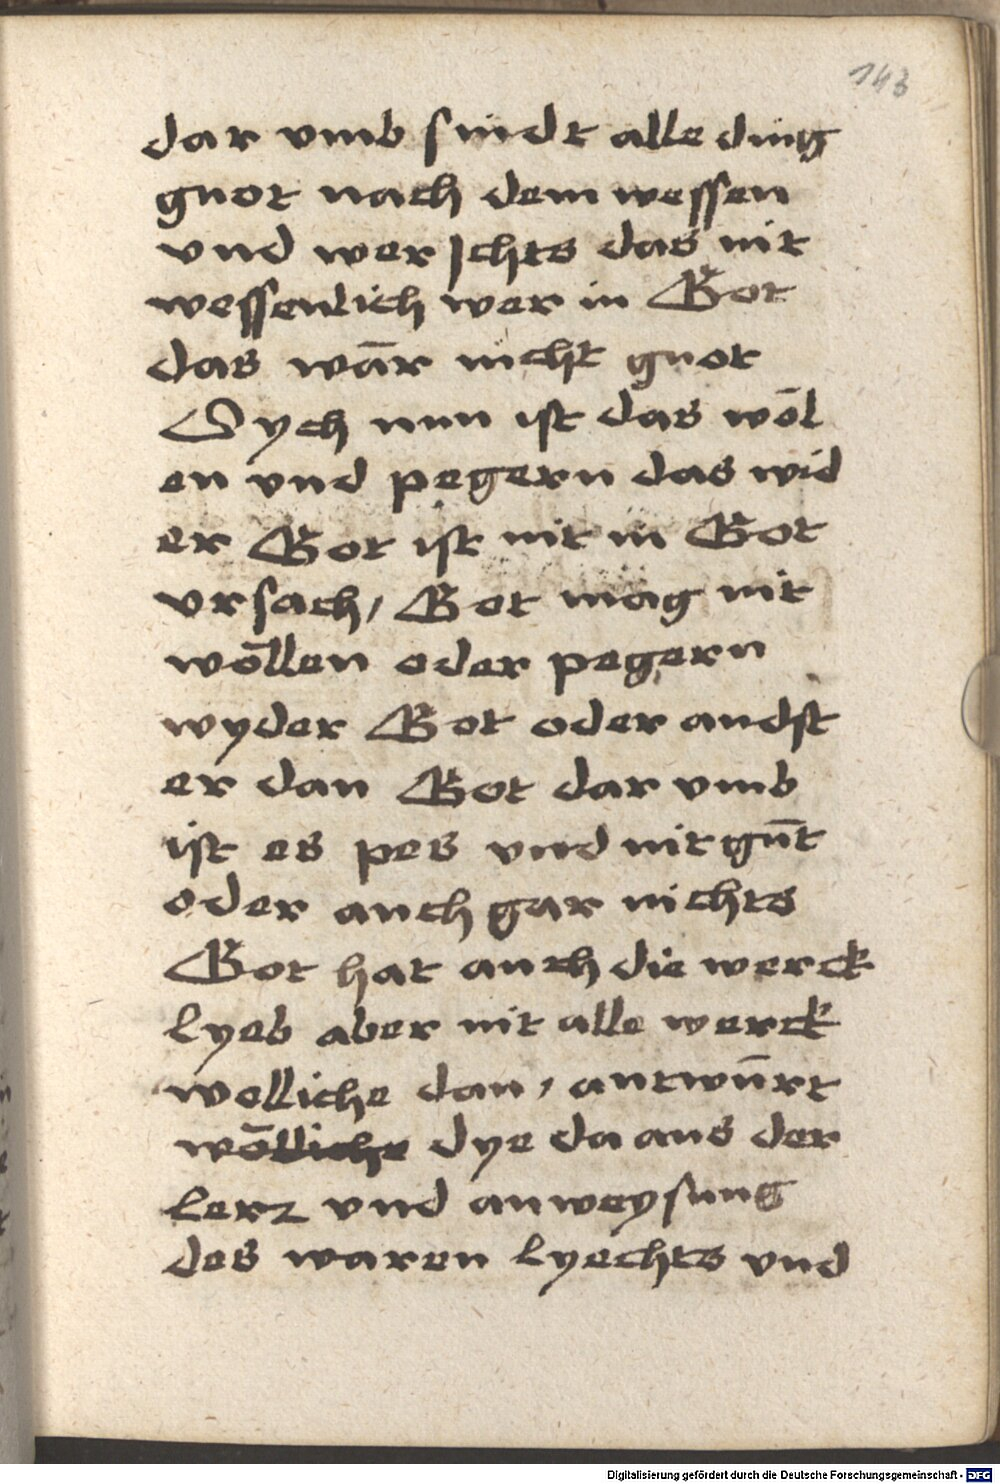 143
dar vmb sindt alle ding
guot nach dem wessen
vnd wer Jchts das nit
wessenlich wer in Got
das wār nicht guot
Sych nun ist das wōl
en vnd pegern das wid
er Got ist nit in Got
vrsach, Got mag nit
wōllen oder pegern
wyder Got oder andst
er dan Got dar vmb
ist es pes vnd nit gūt
oder auch gar nichts
Got hat auch die werck
lyeb aber nit alle werck
welliche dan, antwūrt
wōlliche dye da aus der
lerz vnd anweysung
des waren lyechts vnd
Digitalisierung gefördert durch die Deutsche Forschungsgemeinschaft - DFG